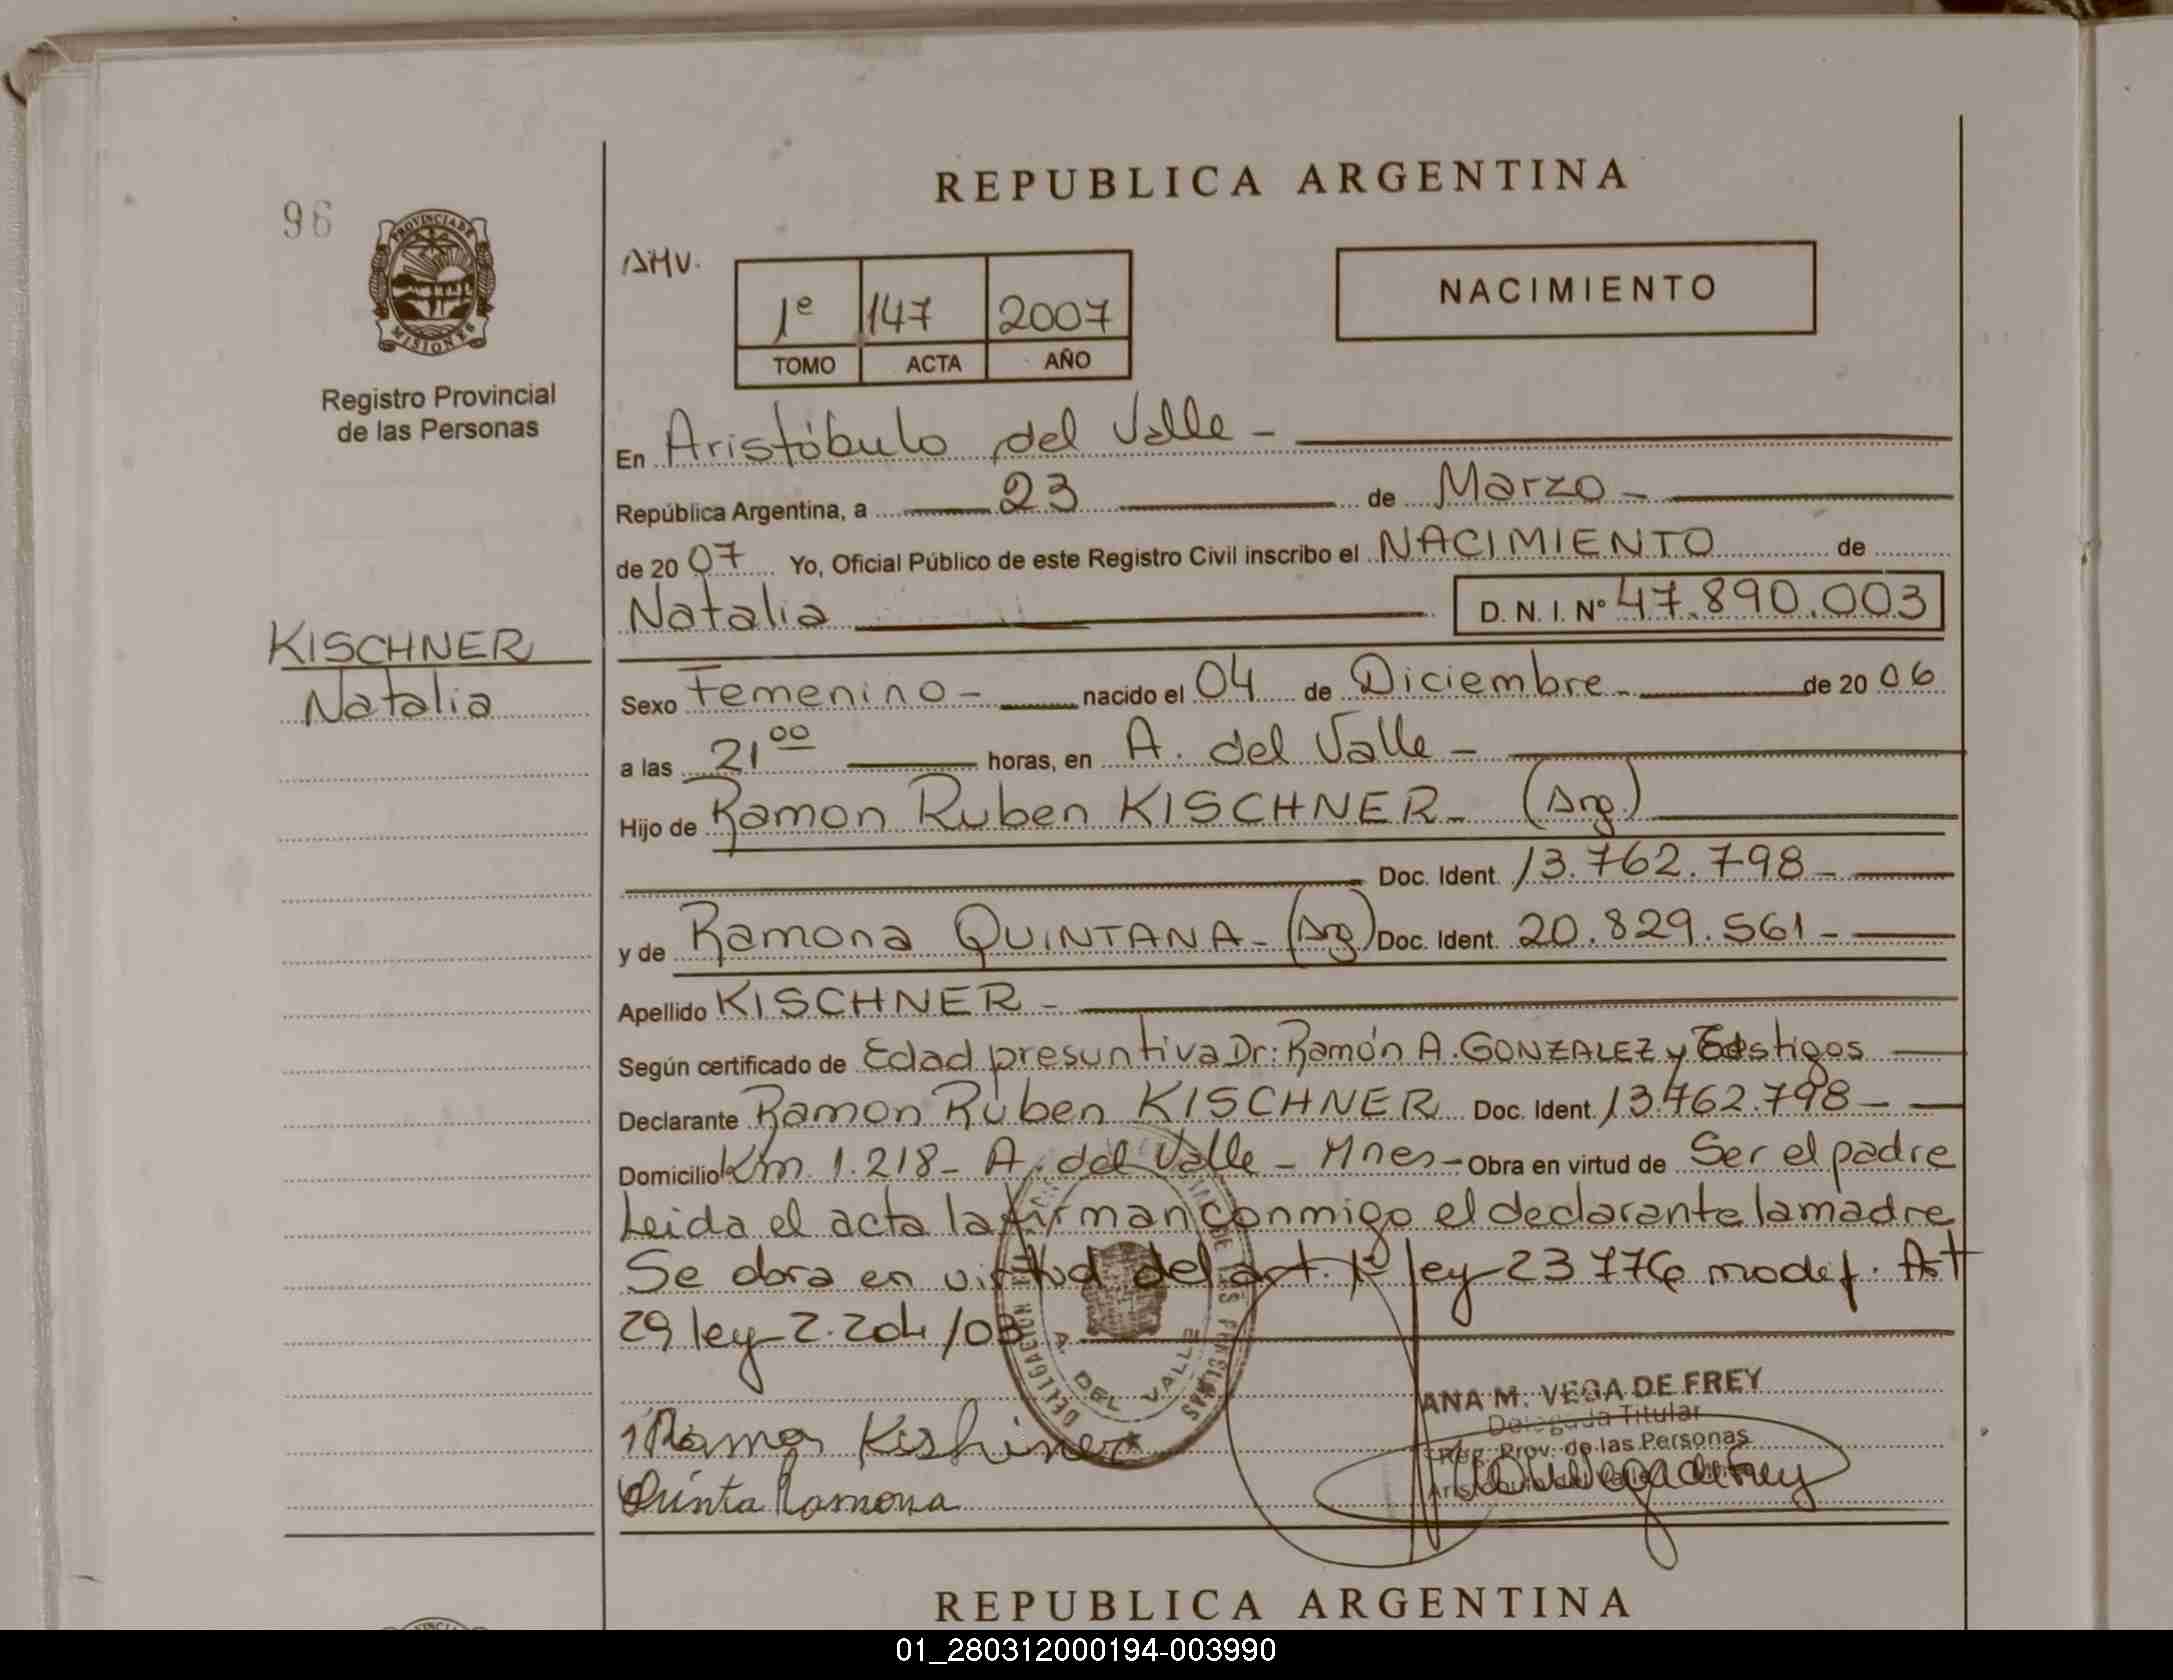 REPUBLICA ARGENTINA
96
PROVINCIA DE MISIONES
Registro Provincial
de las Personas
AMV.
1º 147 2007
TOMO ACTA AÑO
NACIMIENTO
En Aristóbulo del Valle -
República Argentina, a 23 de Marzo -
de 2007 Yo, Oficial Público de este Registro Civil inscribo el NACIMIENTO de
Natalia D. N. I. Nº 47.890.003
KISCHNER
Natalia
Sexo Femenino - nacido el 04 de Diciembre - de 2006
a las 21 00 horas, en A. del Valle -
Hijo de Ramon Ruben KISCHNER - (Arg.)
Doc. Ident. 13.762.798 -
y de Ramona QUINTANA - (Arg) Doc. Ident. 20.829.561 -
Apellido KISCHNER -
Según certificado de Edad presuntiva Dr: Ramón A. GONZALEZ y Testigos
Declarante Ramon Ruben KISCHNER Doc. Ident. 13.762.798 -
Domicilio Km. 1.218 - A. del Valle - Mnes - Obra en virtud de Ser el padre
Leida el acta la firman conmigo el declarante la madre
Se obra en virtud del art. 1º ley 23776 modef. Art
29 ley 2.204/03
DELEGACION A. DEL VALLE DE LAS PERSONAS
ANA M. VEGA DE FREY
Delegada Titular
Reg. Prov. de las Personas
Ramon Kishiner
Quinta Ramona
REPUBLICA ARGENTINA
01_280312000194-003990